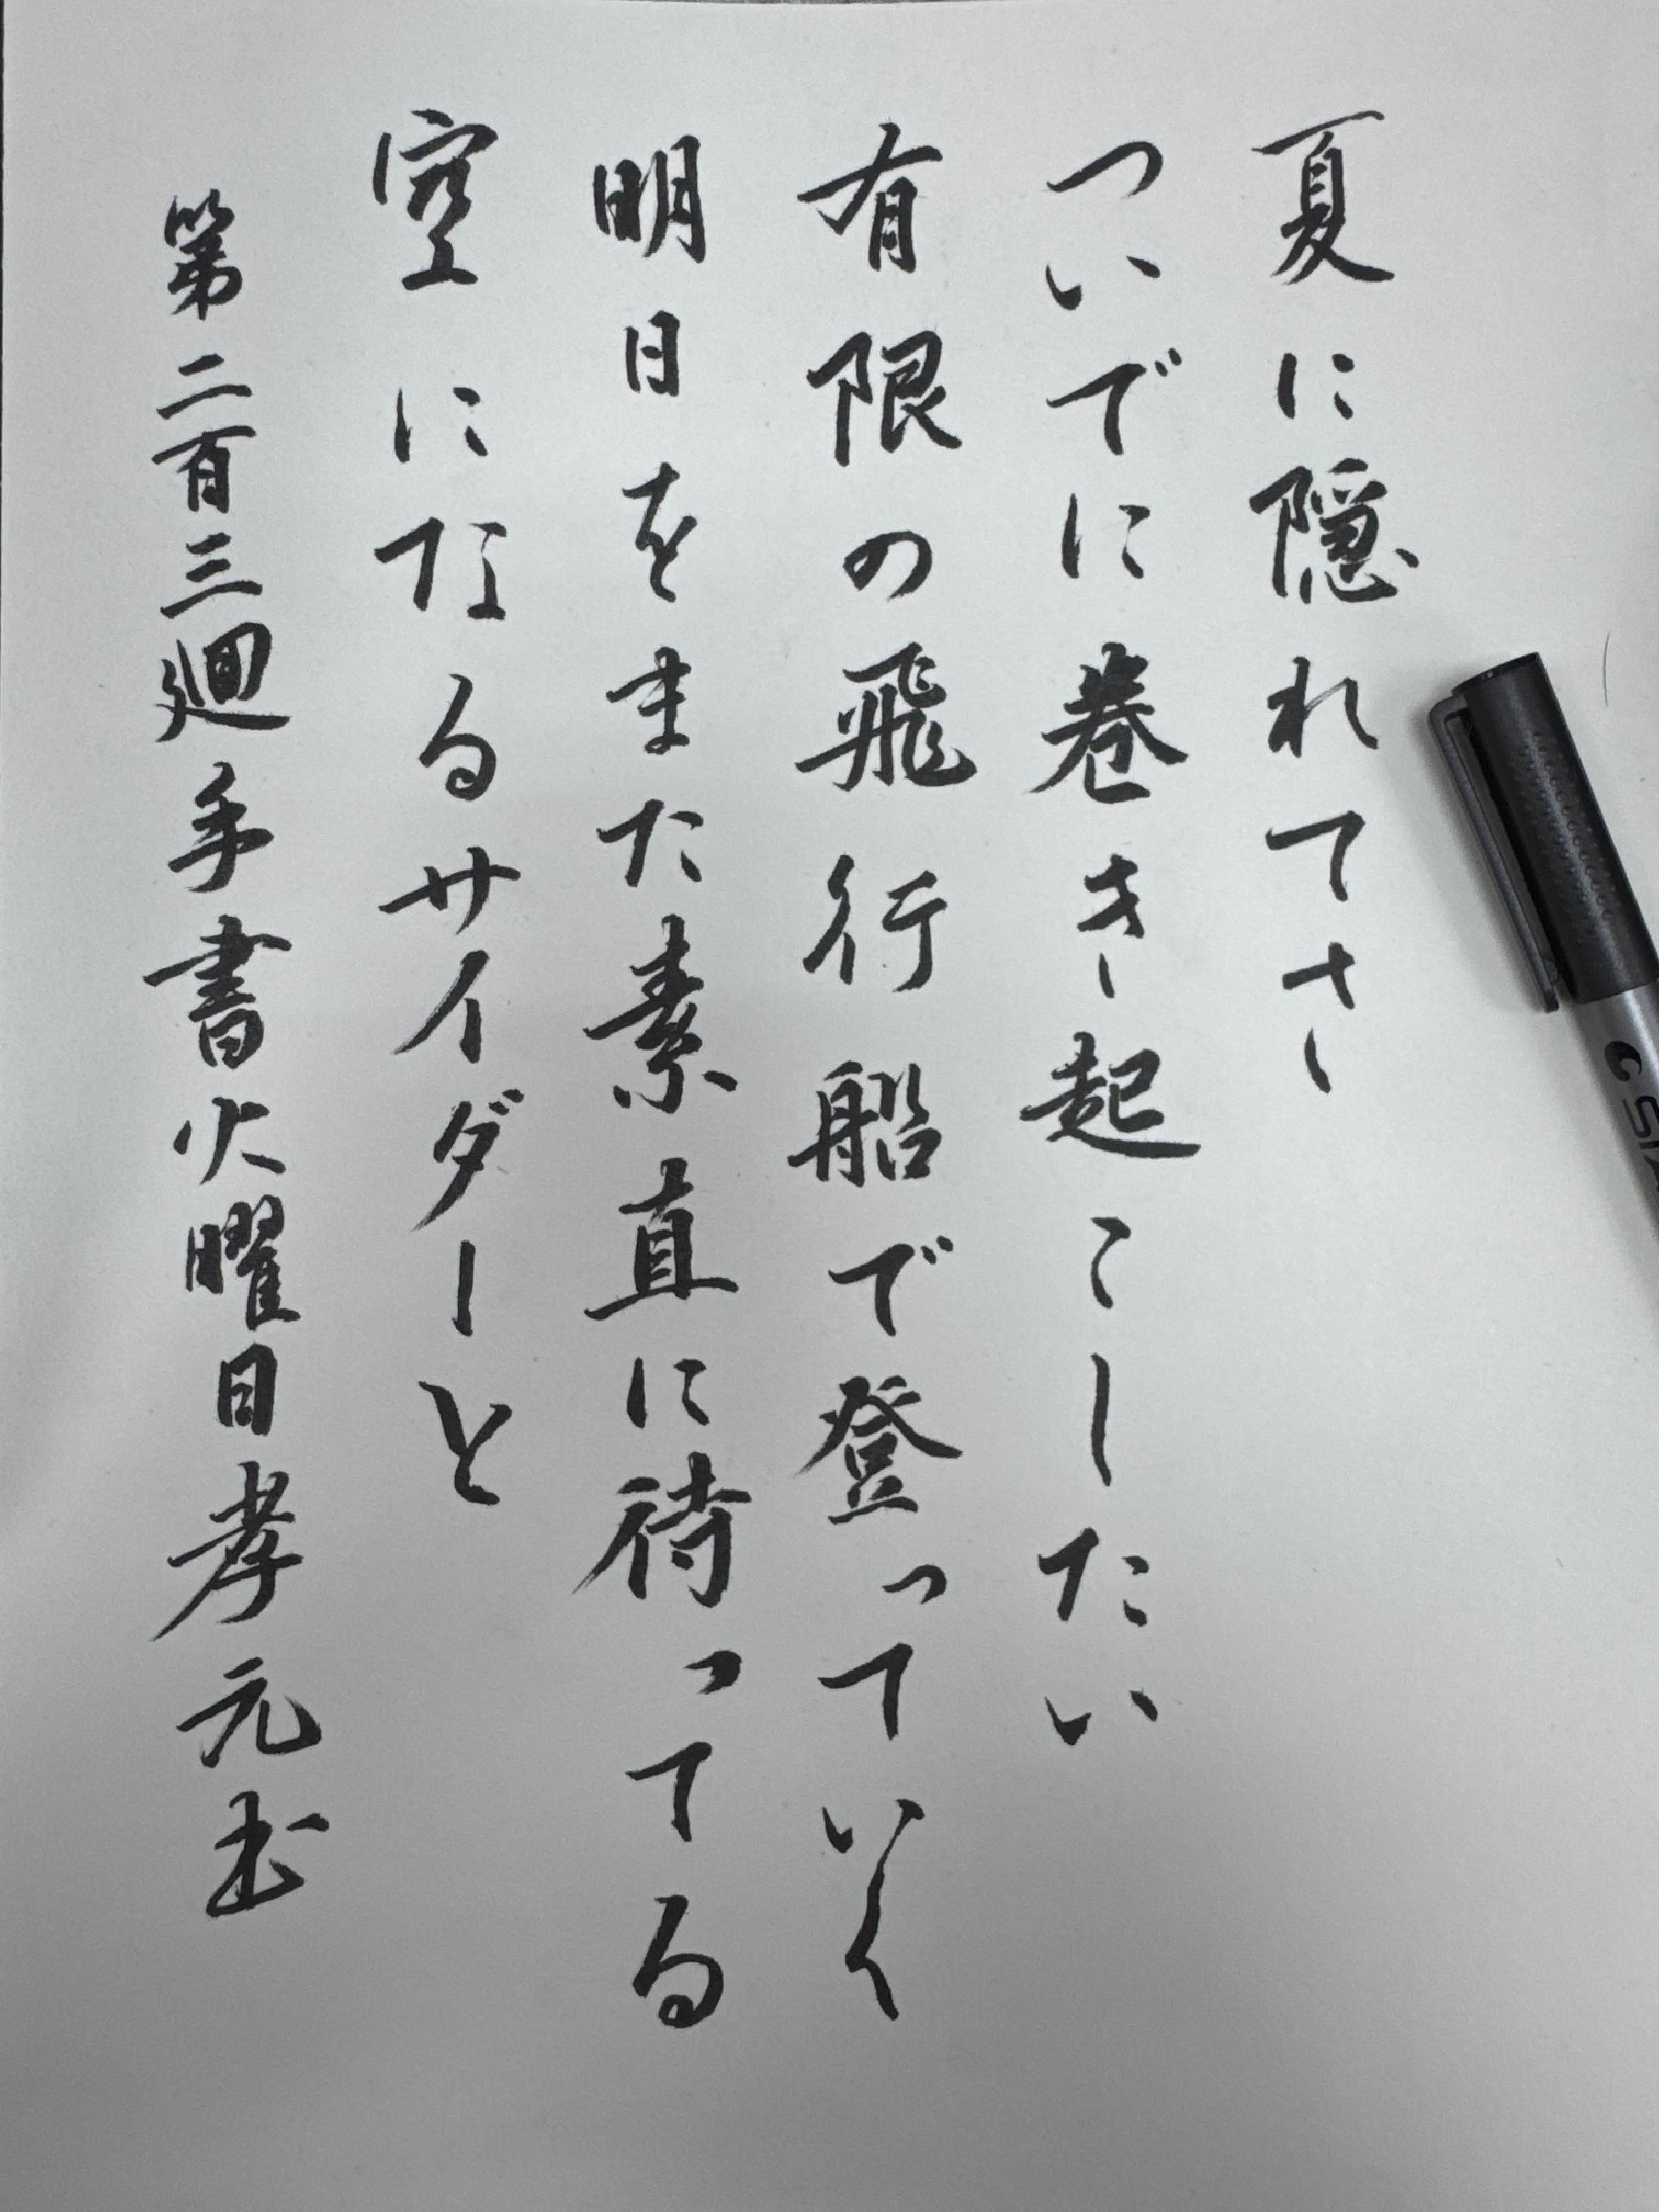 夏に隠れてさ
ついでに巻き起こしたい
有限の飛行船で登っていく
明日をまた素直に待ってる
空になるサイダーと
第二百三廻手書火曜日孝元书